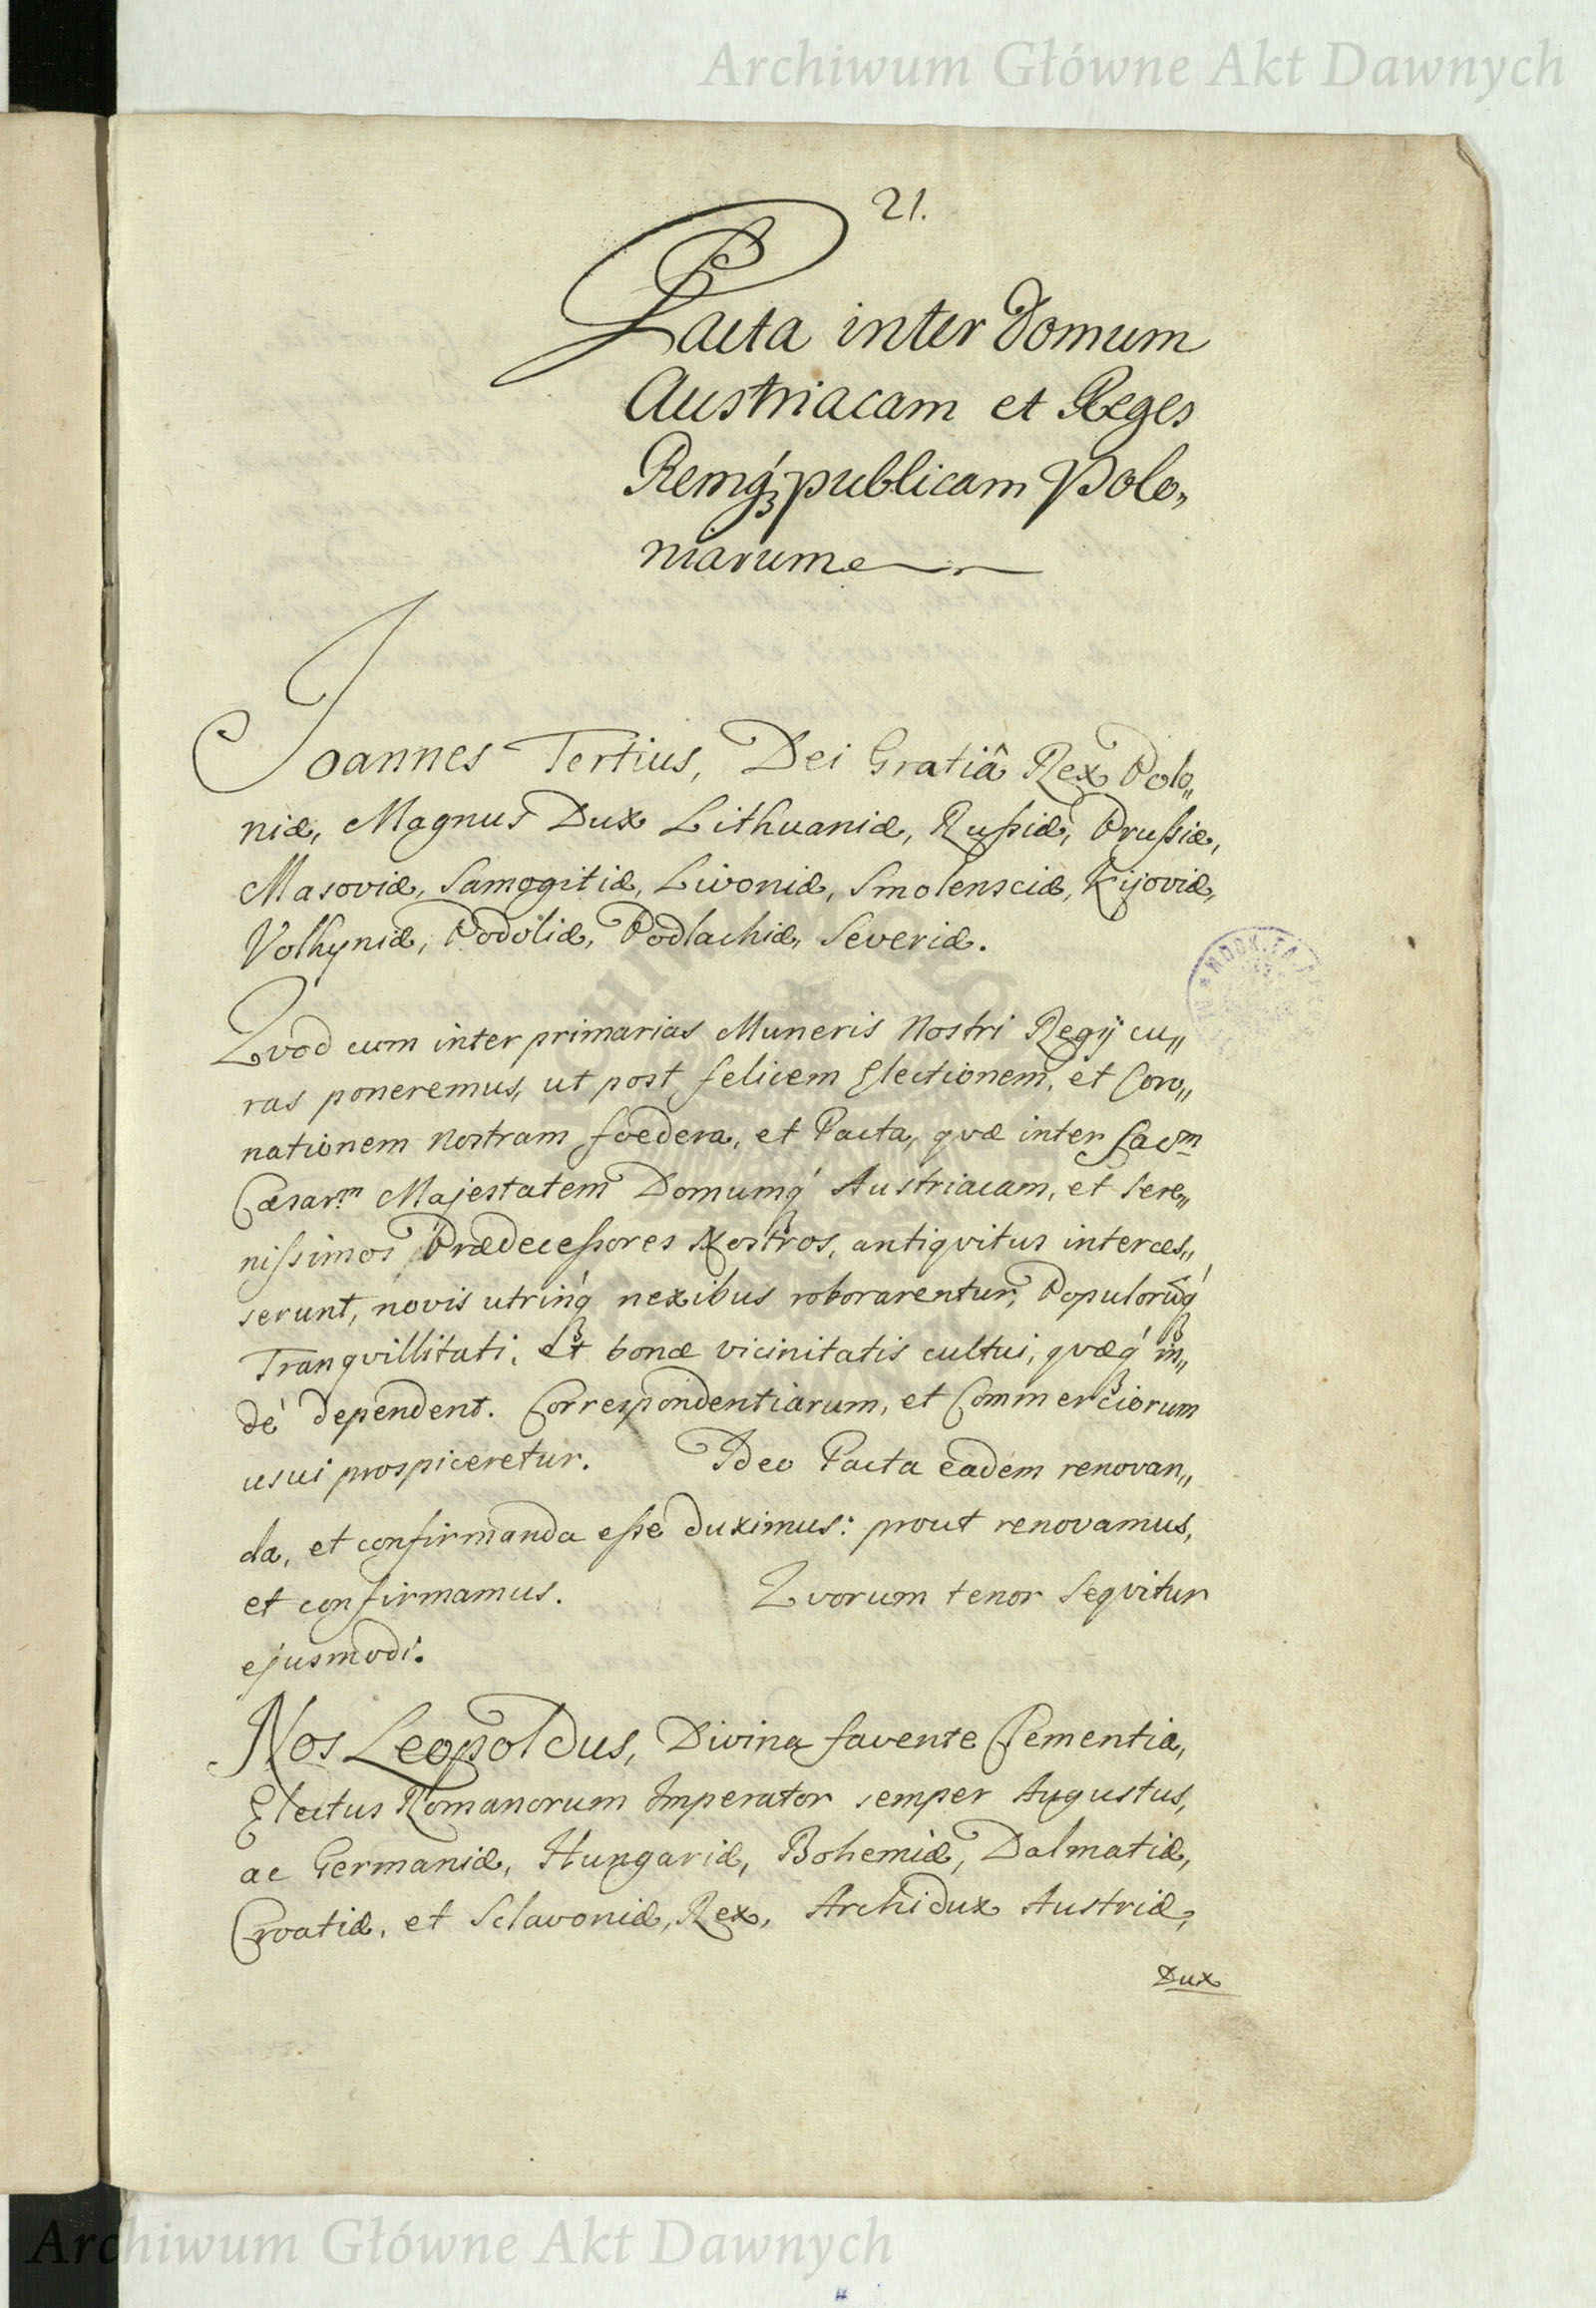 Archiwum Główne Akt Dawnych
21.
Pacta inter Domum
Austriacam et Reges
Remq́ꝫpublicam Polo„
niarum
Joannes Tertius, Dei Gratiâ Rex Polo„
niæ, Magnus Dux Lithuaniæ, Rußiæ, Prußiæ,
Masoviæ, Samogitiæ, Livoniæ, Smolensciæ, Kijoviæ,
Volhyniæ, Podoliæ, Podlachiæ, Severiæ.
Qvod cum inter primarias Muneris Nostri Regÿ cu„
ras poneremus, ut post felicem Electionem, et Coro„
nationem Nostram foedera, et Pacta, qvæ inter Sacrm
Cæsarm Majestatem Domumq́ꝫ Austriacam, et Sere„
nißimos Prædeceßores Nostros, antiqvitus interces„
serunt, novis utrinq́ꝫ nexibus roborarentur, Populorūq́ꝫ
Tranqvillitati, et bonæ vicinitatis cultui, qvæq́ꝫ in„
dé dependent. Correspondentiarum, et Commerciorum
usui prospiceretur. Ideo Pacta eadem renovan„
da, et confirmanda eße duximus: prout renovamus,
et confirmamus. Qvorum tenor seqvitur
ejusmodi.
Nos Leopoldus, Divina favente Clementia,
Electus Romanorum Imperator semper Augustus,
ac Germaniæ, Hungariæ, Bohemiæ, Dalmatiæ,
Croatiæ, et Sclavoniæ, Rex, Archidux Austriæ,
Dux
Archiwum Główne Akt Dawnych